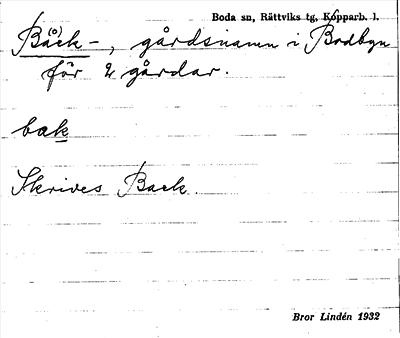 Boda sn, Rättviks tg, Kopparb. l.
Båck-, gårdsnamn i Bodbyn
för 2 gårdar.
bak
Skrives Back.
Bror Lindén 1932